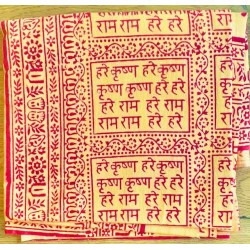 राम राम हरे हरे
हरे कृष्ण हरे कृष्ण
कृष्ण कृष्ण हरे हरे
हरे राम हरे राम
राम राम हरे हरे
हरे कृष्ण हरे कृष्ण
कृष्ण कृष्ण हरे हरे
हरे राम हरे राम
राम राम हरे हरे